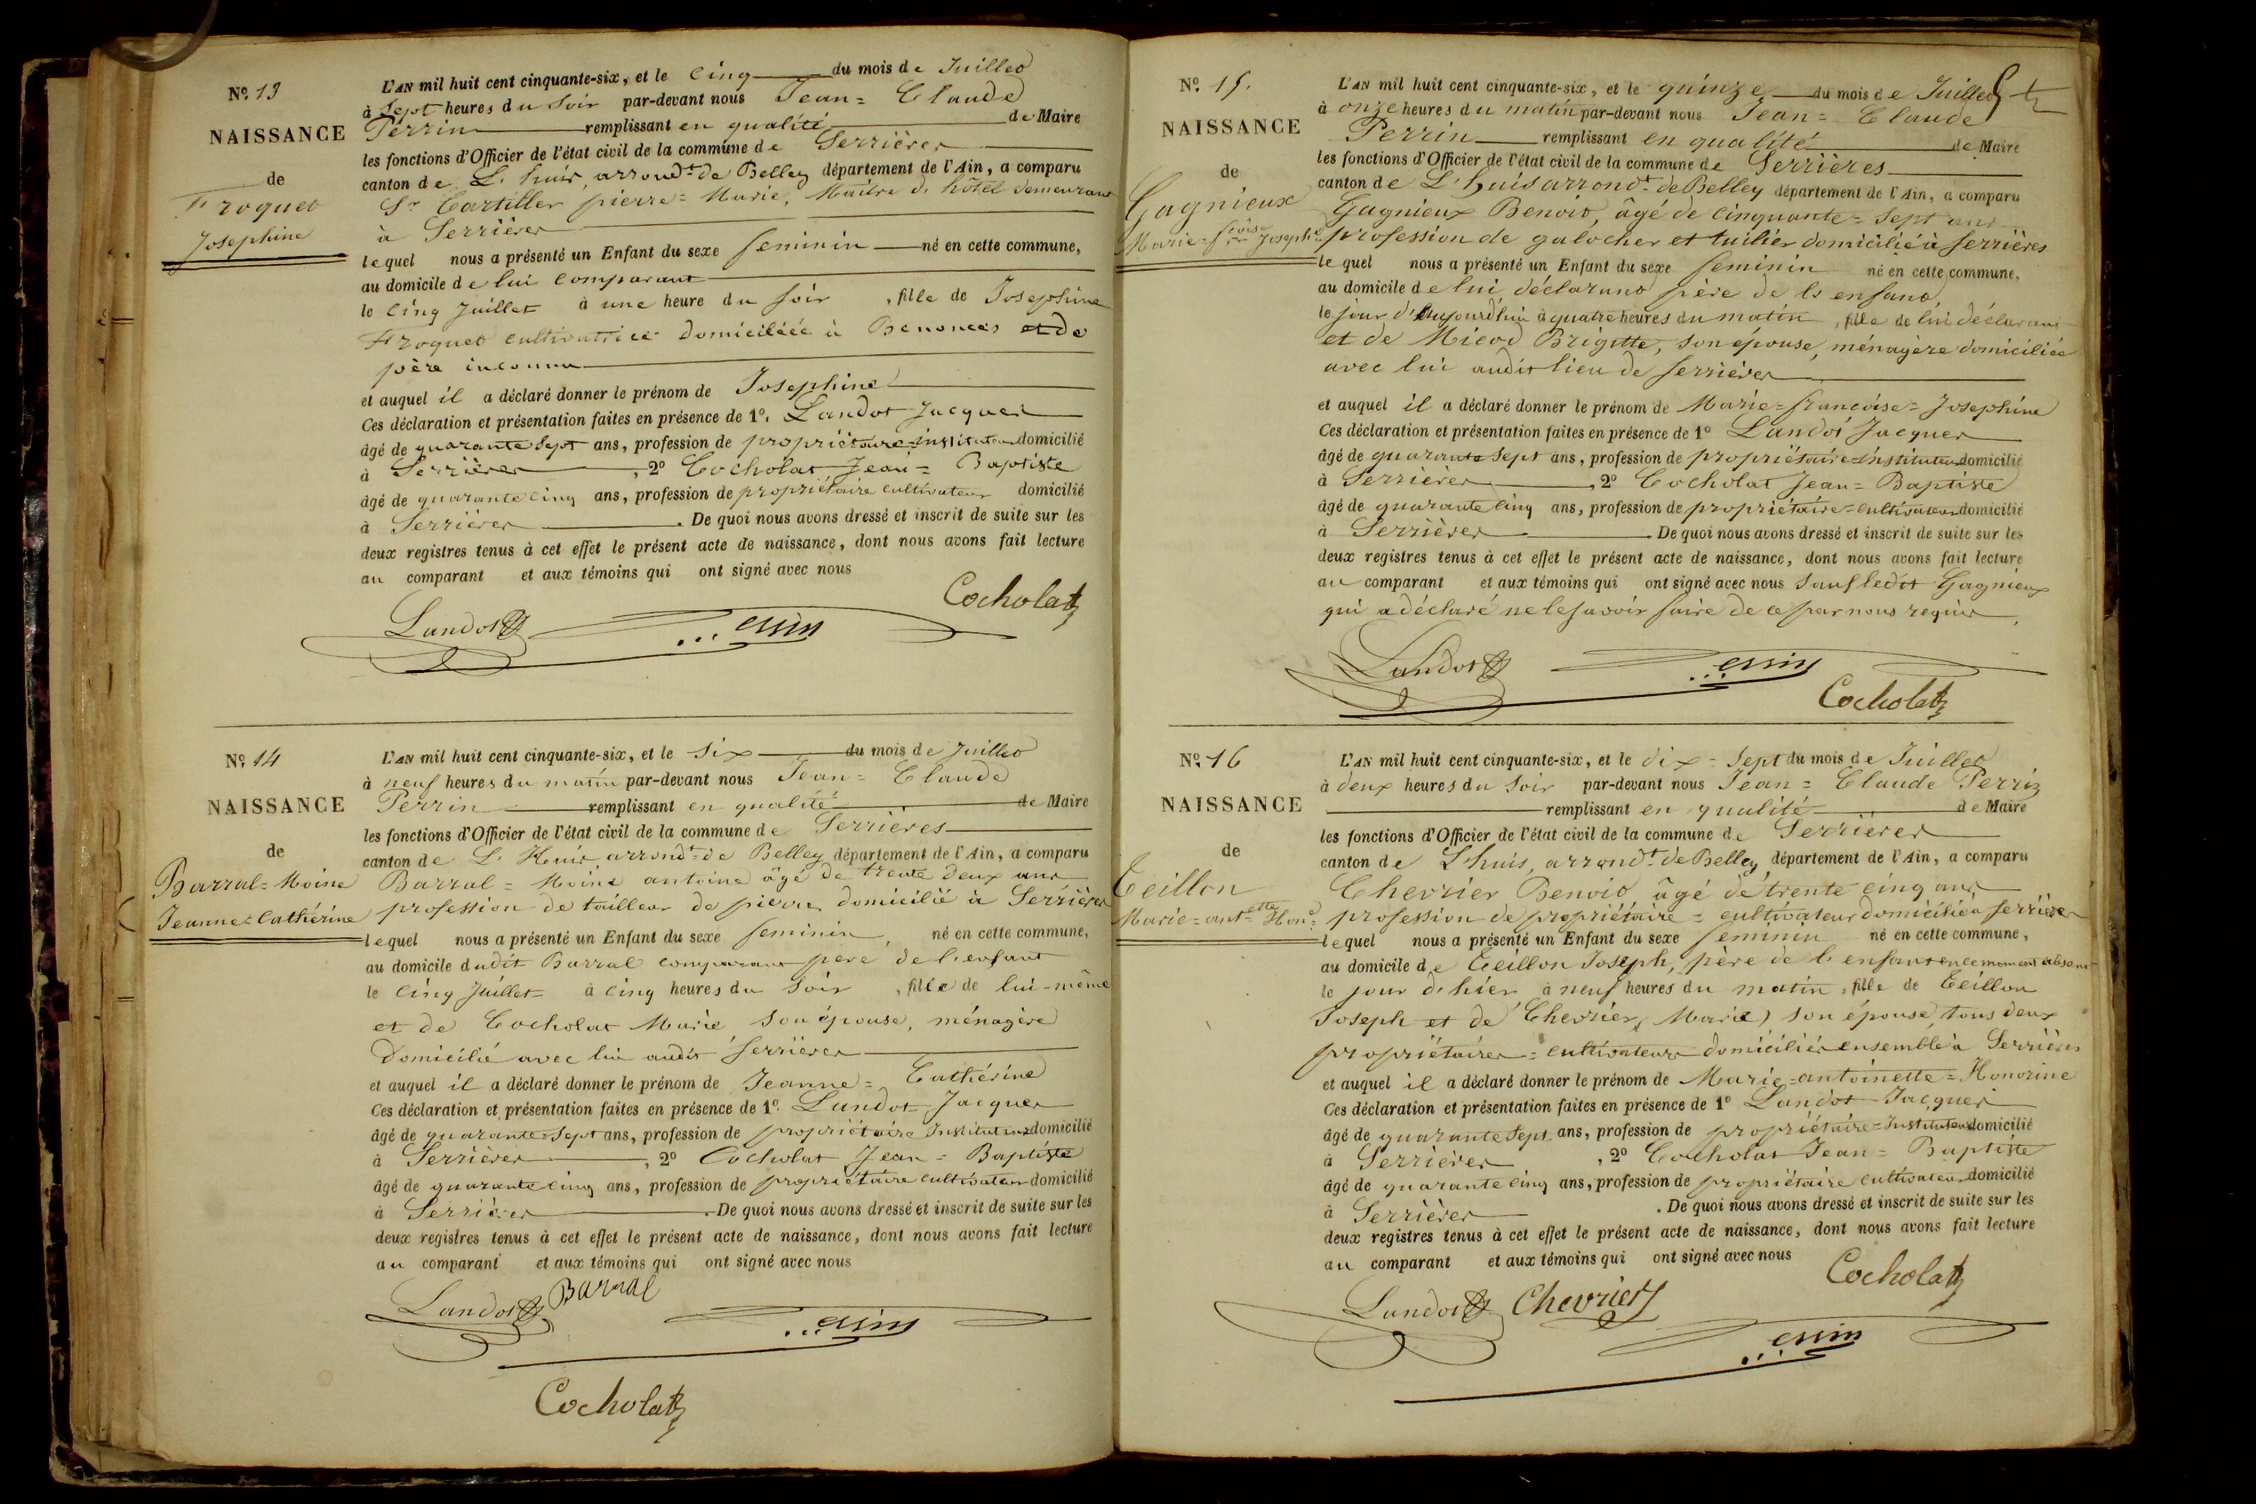 Nº 13
NAISSANCE
de
Froquet
Josephine
L'AN mil huit cent cinquante-six, et le cinq du mois de Juillet
à Sept heures du Soir par-devant nous Jean = Claude
Perrin remplissant en qualité de Maire
les fonctions d'Officier de l'état civil de la commune de Serrières
canton de L'huis, arrondt de Belley département de l'Ain, a comparu
Sr Cartiller pierre = Marie, Maître d'hôtel demeurant
à Serrières
lequel nous a présenté un Enfant du sexe feminin né en cette commune,
au domicile de lui comparant
le cinq Juillet à une heure du soir, fille de Josephine
Froquet cultivatrice domiciliée à Benonces et de
père inconnu
et auquel il a déclaré donner le prénom de Josephine
Ces déclaration et présentation faites en présence de 1º. Landot Jacques
âgé de quarante Sept ans, profession de propriétaire = instituteur domicilié
à Serrières, 2º Cocholat Jean = Baptiste
âgé de quarante cinq ans, profession de propriétaire cultivateur domicilié
à Serrières. De quoi nous avons dressé et inscrit de suite sur les
deux registres tenus à cet effet le présent acte de naissance, dont nous avons fait lecture
au comparant et aux témoins qui ont signé avec nous
Cocholat
Landot
Nº 14
NAISSANCE
de
Barral = Moine
Jeanne = Cathérine
L'AN mil huit cent cinquante-six, et le six du mois de Juillet
à neuf heures du matin par-devant nous Jean = Claude
Perrin remplissant en qualité de Maire
les fonctions d'Officier de l'état civil de la commune de Serrières
canton de L'Huis, arrondt de Belley département de l'Ain, a comparu
Barral = Moine antoine âgé de trente deux ans
profession de tailleur de pierre domicilié à Serrières
lequel nous a présenté un Enfant du sexe feminin, né en cette commune,
au domicile dudit Barral comparant père de l'enfant
le cinq Juillet = à cinq heures du soir, fille de lui-même
et de Cocholat Marie son épouse, ménagère
domicilié avec lui audit Serrières
et auquel il a déclaré donner le prénom de Jeanne = Cathérine
Ces déclaration et présentation faites en présence de 1º. Landot Jacques
âgé de quarante Sept ans, profession de propriétaire Instituteur domicilié
à Serrières, 2º Cocholat Jean = Baptiste
âgé de quarante cinq ans, profession de propriétaire cultivateur domicilié
à Serrières. De quoi nous avons dressé et inscrit de suite sur les
deux registres tenus à cet effet le présent acte de naissance, dont nous avons fait lecture
au comparant et aux témoins qui ont signé avec nous
Landot Barral
Cocholat
Nº 15.
NAISSANCE
de
Gagnieux
Marie = fcoise Josephe
L'AN mil huit cent cinquante-six, et le quinze du mois de Juillet
à onze heures du matin par-devant nous Jean = Claude
Perrin remplissant en qualité de Maire
les fonctions d'Officier de l'état civil de la commune de Serrières
canton de L'huis arrondt de Belley département de l'Ain, a comparu
Gagnieux Benoit, âgé de cinquante = sept ans
profession de galocher et tuilier domicilié à Serrières
lequel nous a présenté un Enfant du sexe feminin né en cette commune,
au domicile de lui déclarant père de l'enfant,
le jour d'aujourd'hui à quatre heures du matin, fille de lui déclarant
et de Micod Brigitte, son épouse, ménagère domiciliée
avec lui audit lieu de Serrières
et auquel il a déclaré donner le prénom de Marie = francoise = Josephine
Ces déclaration et présentation faites en présence de 1º Landot Jacques
âgé de quarante Sept ans, profession de propriétaire instituteur domicilié
à Serrières, 2º Cocholat Jean = Baptiste
âgé de quarante cinq ans, profession de propriétaire = cultivateur domicilié
à Serrières. De quoi nous avons dressé et inscrit de suite sur les
deux registres tenus à cet effet le présent acte de naissance, dont nous avons fait lecture
au comparant et aux témoins qui ont signé avec nous sauf ledit Gagnieux
qui a déclaré ne le savoir faire de ce par nous requis
Landot
Cocholat
Nº 16
NAISSANCE
de
Teillon
Marie = antette Honoe
L'AN mil huit cent cinquante-six, et le dix = Sept du mois de Juillet
à deux heures du soir par-devant nous Jean = Claude Perrin
remplissant en qualité de Maire
les fonctions d'Officier de l'état civil de la commune de Serrières
canton de L'huis, arrondt de Belley département de l'Ain, a comparu
Chevrier Benoit âgé de trente cinq ans
profession de propriétaire = cultivateur domicilié à Serrières
lequel nous a présenté un Enfant du sexe feminin né en cette commune,
au domicile de Teillon Joseph, père de l'enfant en ce moment absent
le jour d'hier à neuf heures du matin, fille de Teillon
Joseph et de Chevrier, Marie, son épouse, tous deux
propriétaires = cultivateurs domiciliés ensemble à Serrières
et auquel il a déclaré donner le prénom de Marie = antoinette = Honorine
Ces déclaration et présentation faites en présence de 1º Landot Jacques
âgé de quarante Sept ans, profession de propriétaire = Instituteur domicilié
à Serrières, 2º Cocholat Jean = Baptiste
âgé de quarante cinq ans, profession de propriétaire cultivateur domicilié
à Serrières. De quoi nous avons dressé et inscrit de suite sur les
deux registres tenus à cet effet le présent acte de naissance, dont nous avons fait lecture
au comparant et aux témoins qui ont signé avec nous
Cocholat
Landot Chevrier